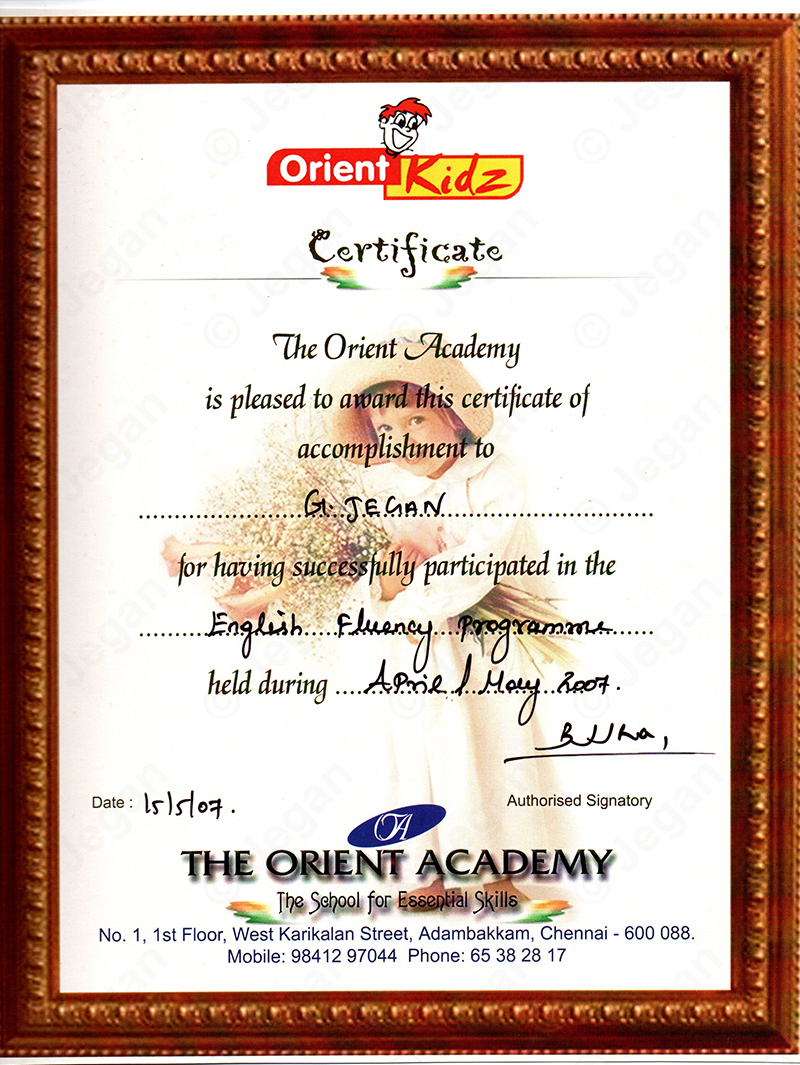 Orient Kidz
Certificate
The Orient Academy
is pleased to award this certificate of
accomplishment to
G. JEGAN
for having successfully participated in the
English Fluency Programme
held during April / May 2007.
Date : 15/5/07.
Authorised Signatory
OA
THE ORIENT ACADEMY
The School for Essential Skills
No. 1, 1st Floor, West Karikalan Street, Adambakkam, Chennai - 600 088.
Mobile: 98412 97044 Phone: 65 38 28 17
© Jegan